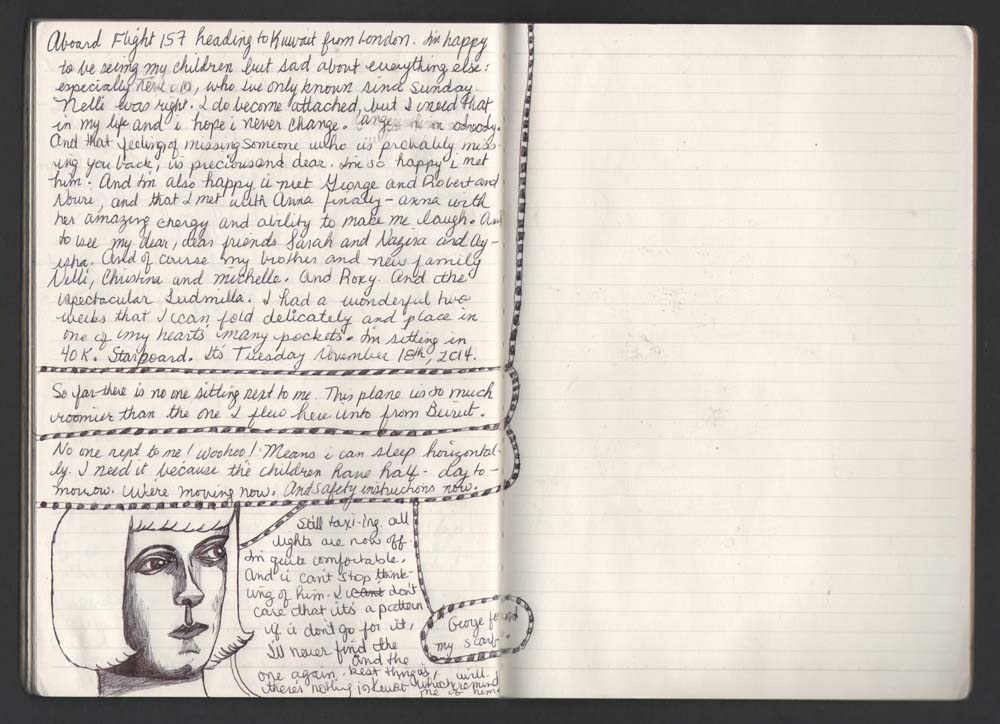 Aboard Flight 157 heading to Kuwait from London. I'm happy
to be seing my children but sad about everything else:
especially who i've only known since Sunday.
Nelli was right. I do become attached, but I need that
in my life and i hope i never change.
And that feeling of missing someone who is probably miss-
ing you back, is precious and dear. I'm so happy i met
him. And I'm also happy i met George and Robert and
Nouri, and that I met with Anna finally - anna with
her amazing energy and ability to make me laugh. And
to see my dear, dear friends Sarah and Nazira and Ay-
isha. And of course my brother and new family
Nelli, Christina and michelle. And Roxy. And the
spectacular Ludmilla. I had a wonderful two
weeks that I can fold delicately and place in
one of my hearts' many pockets. I'm sitting in
40K. Starboard. It's Tuesday November 18th, 2014.
So far there is no one sitting next to me. This plane is so much
roomier than the one I flew here into from Beirut.
No one next to me! Woohoo! Means i can sleep horizontal-
ly. I need it because the children have half-day to-
morrow. We're moving now. And safety instructions now.
Still taxi-ing. all
lights are now off.
I'm quite comfortable.
And i can't stop think-
ing of him. I cant don't
care that it's a pattern
if i don't go for it,
I'll never find the
one again. and the best things,
there's nothing in Kuwait which will remind me of him.
George found
my scarf.